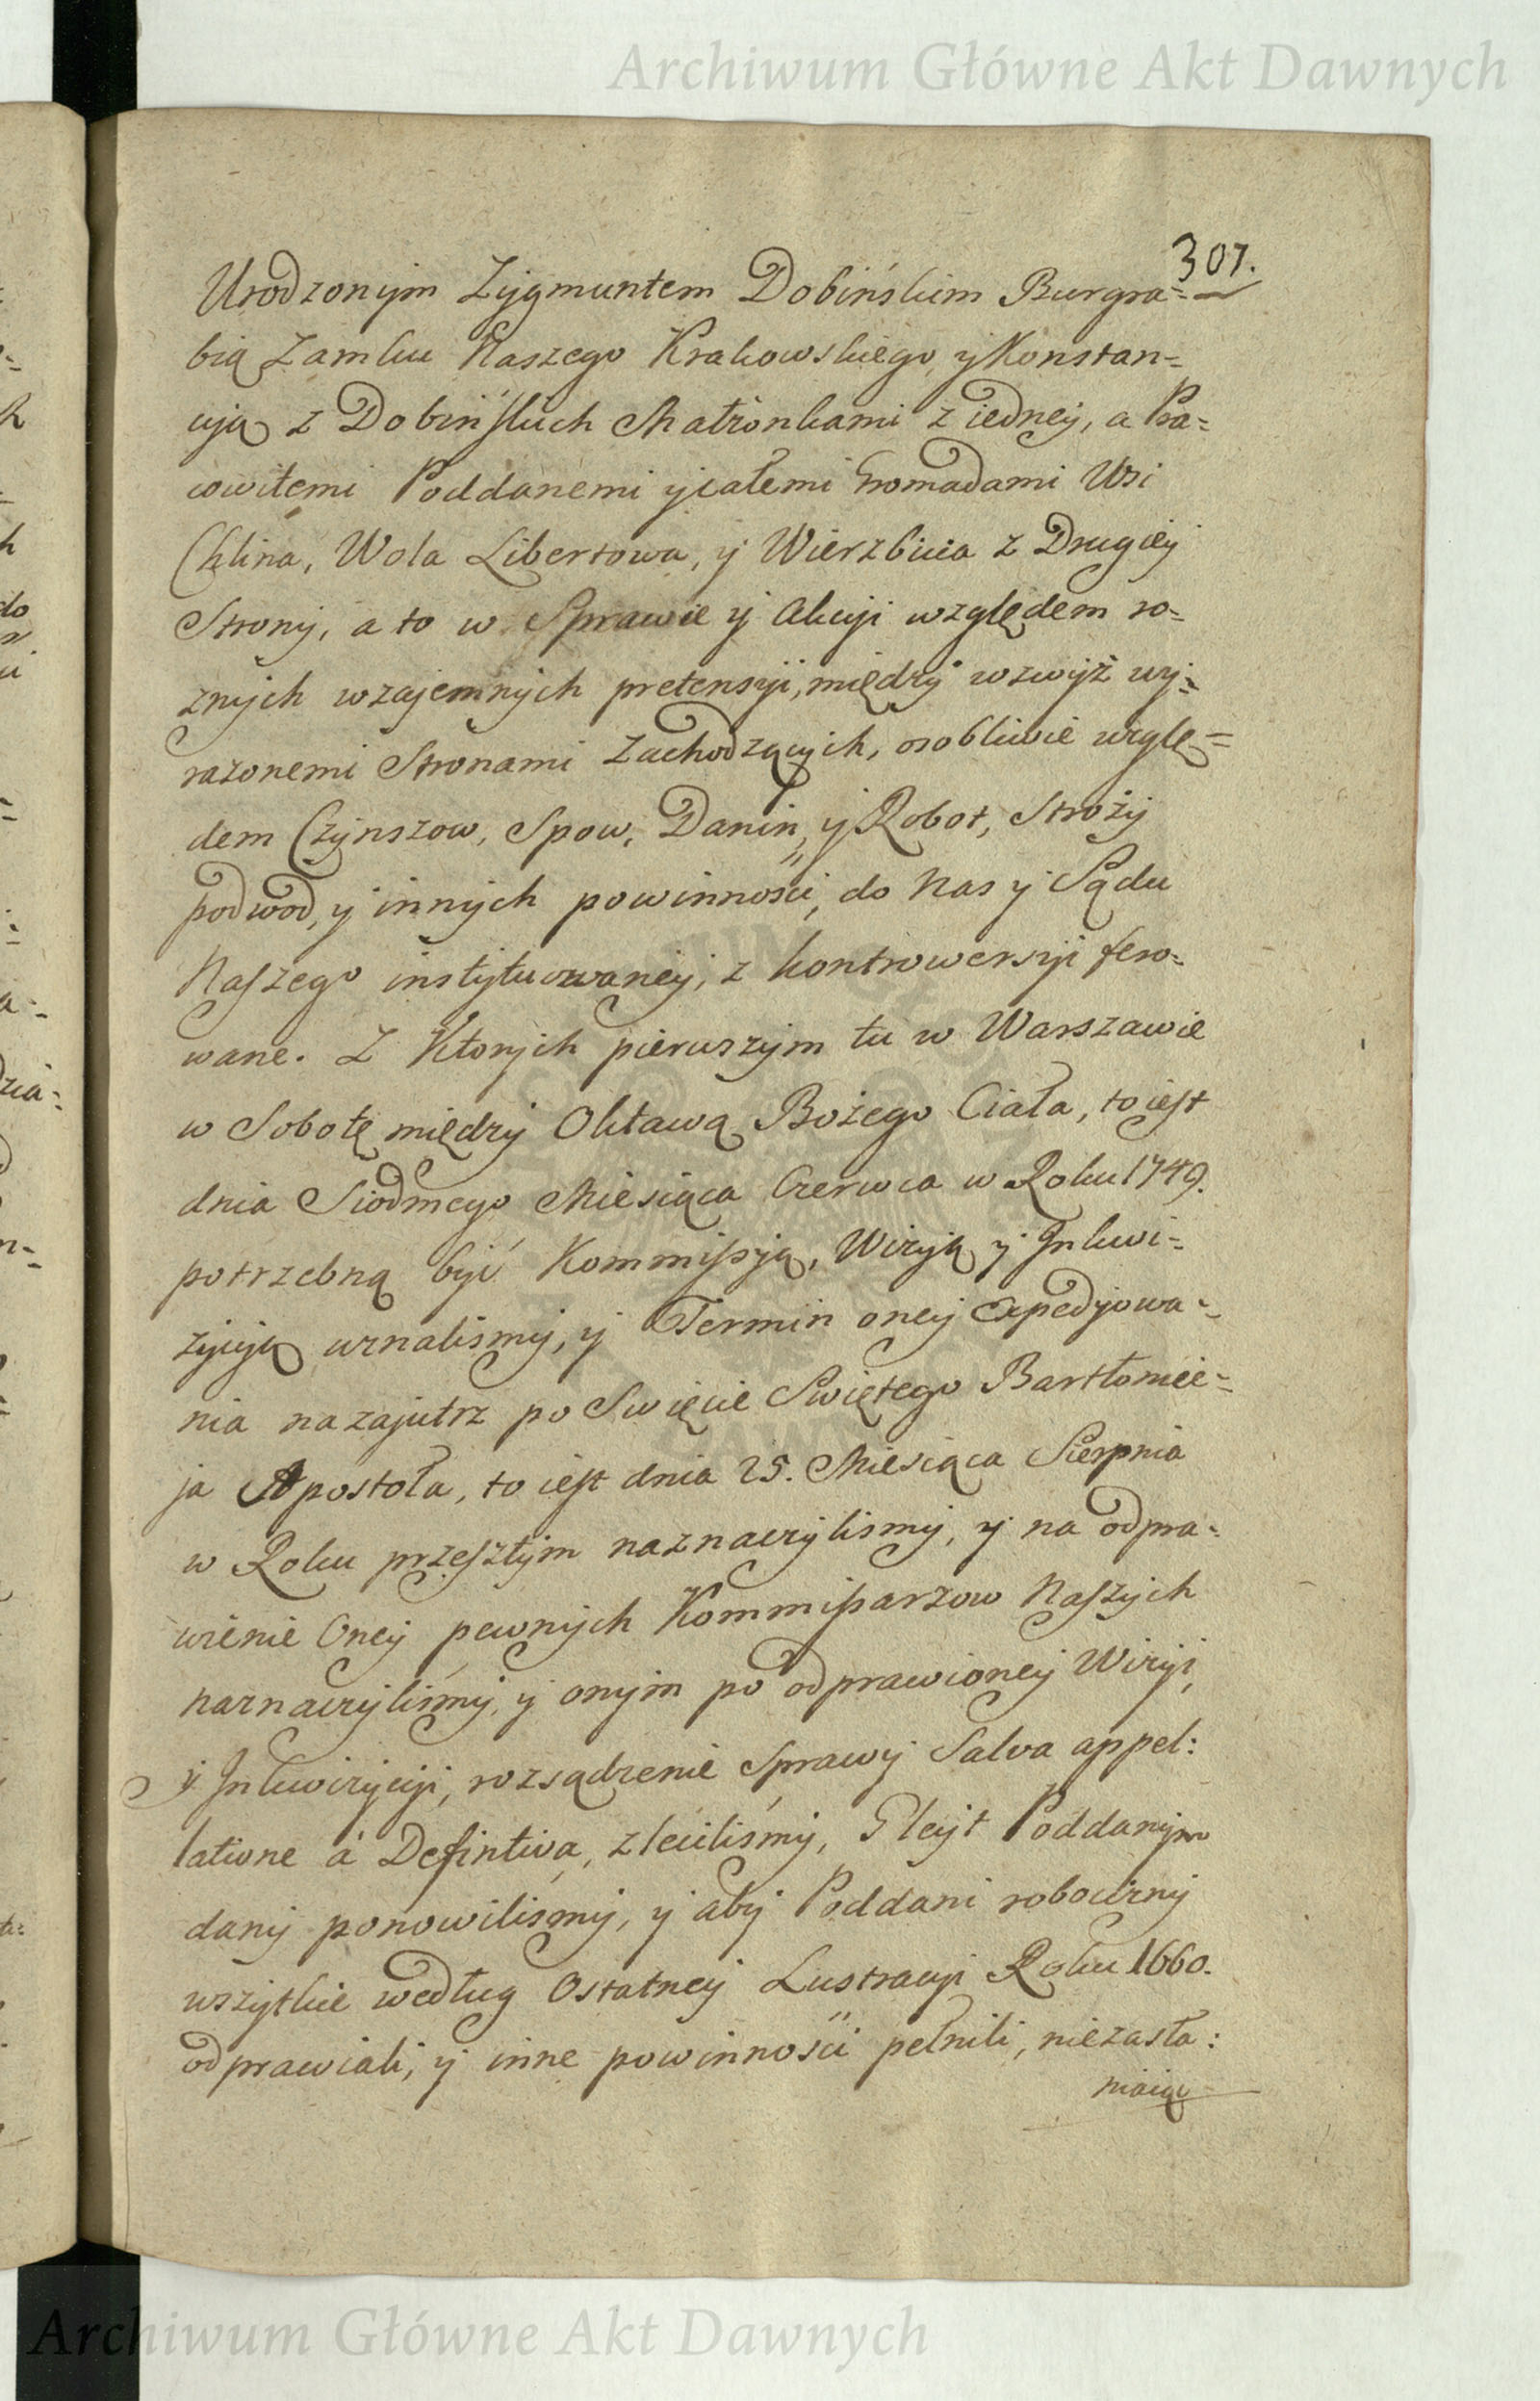 Archiwum Główne Akt Dawnych
307.
Urodzonym Zygmuntem Dobińskim Burgra=
bią Zamku Naszego Krakowskiego, y Konstan=
cyją z Dobińskich Małżonkami z iedney, a Pra=
cowitemi Poddanemi y całemi Gromadami Wsi
Chlina, Wola Libertowa, y Wierzbica z Drugiey
Strony, a to w Sprawie y Akcyi względem ro=
znych wzajemnych pretensyi, między wzwyż wy=
razonemi Stronami zachodzących, osobliwie wzglę=
dem Czynszow, Spow, Danin, y Robot, Stroży
podwod, y innych powinności, do Nas y Sądu
Naszego instytuowaney, z kontrowersyi fero=
wane. Z Ktorych pierwszym tu w Warszawie
w Sobotę między Oktawą Bożego Ciała, to iest
dnia Siodmego Miesiąca Czerwca w Roku 1749.
potrzebną być Kommissyą, Wizyą y Inkwi=
zycyją uznaliśmy, y Termin oney Expedyowa=
nia nazajutrz po Swięcie Swiętego Bartłomie=
ja Apostoła, to iest dnia 25. Miesiąca Sierpnia
w Roku przeszłym naznaczyliśmy, y na odpra=
wienie Oney pewnych Kommissarzow Naszych
naznaczyliśmy, y onym po odprawioney Wizyi,
y Inkwizycyi, rozsądzenie Sprawy Salva appel:
latione à Defintiva, zleciliśmy, Gleyt Poddanym
dany ponowiliśmy, y aby Poddani robocizny
wszytkie według Ostatney Lustracyi Roku 1660.
odprawiali, y inne powinności pełnili, niezasła:
niaiąc
Archiwum Główne Akt Dawnych